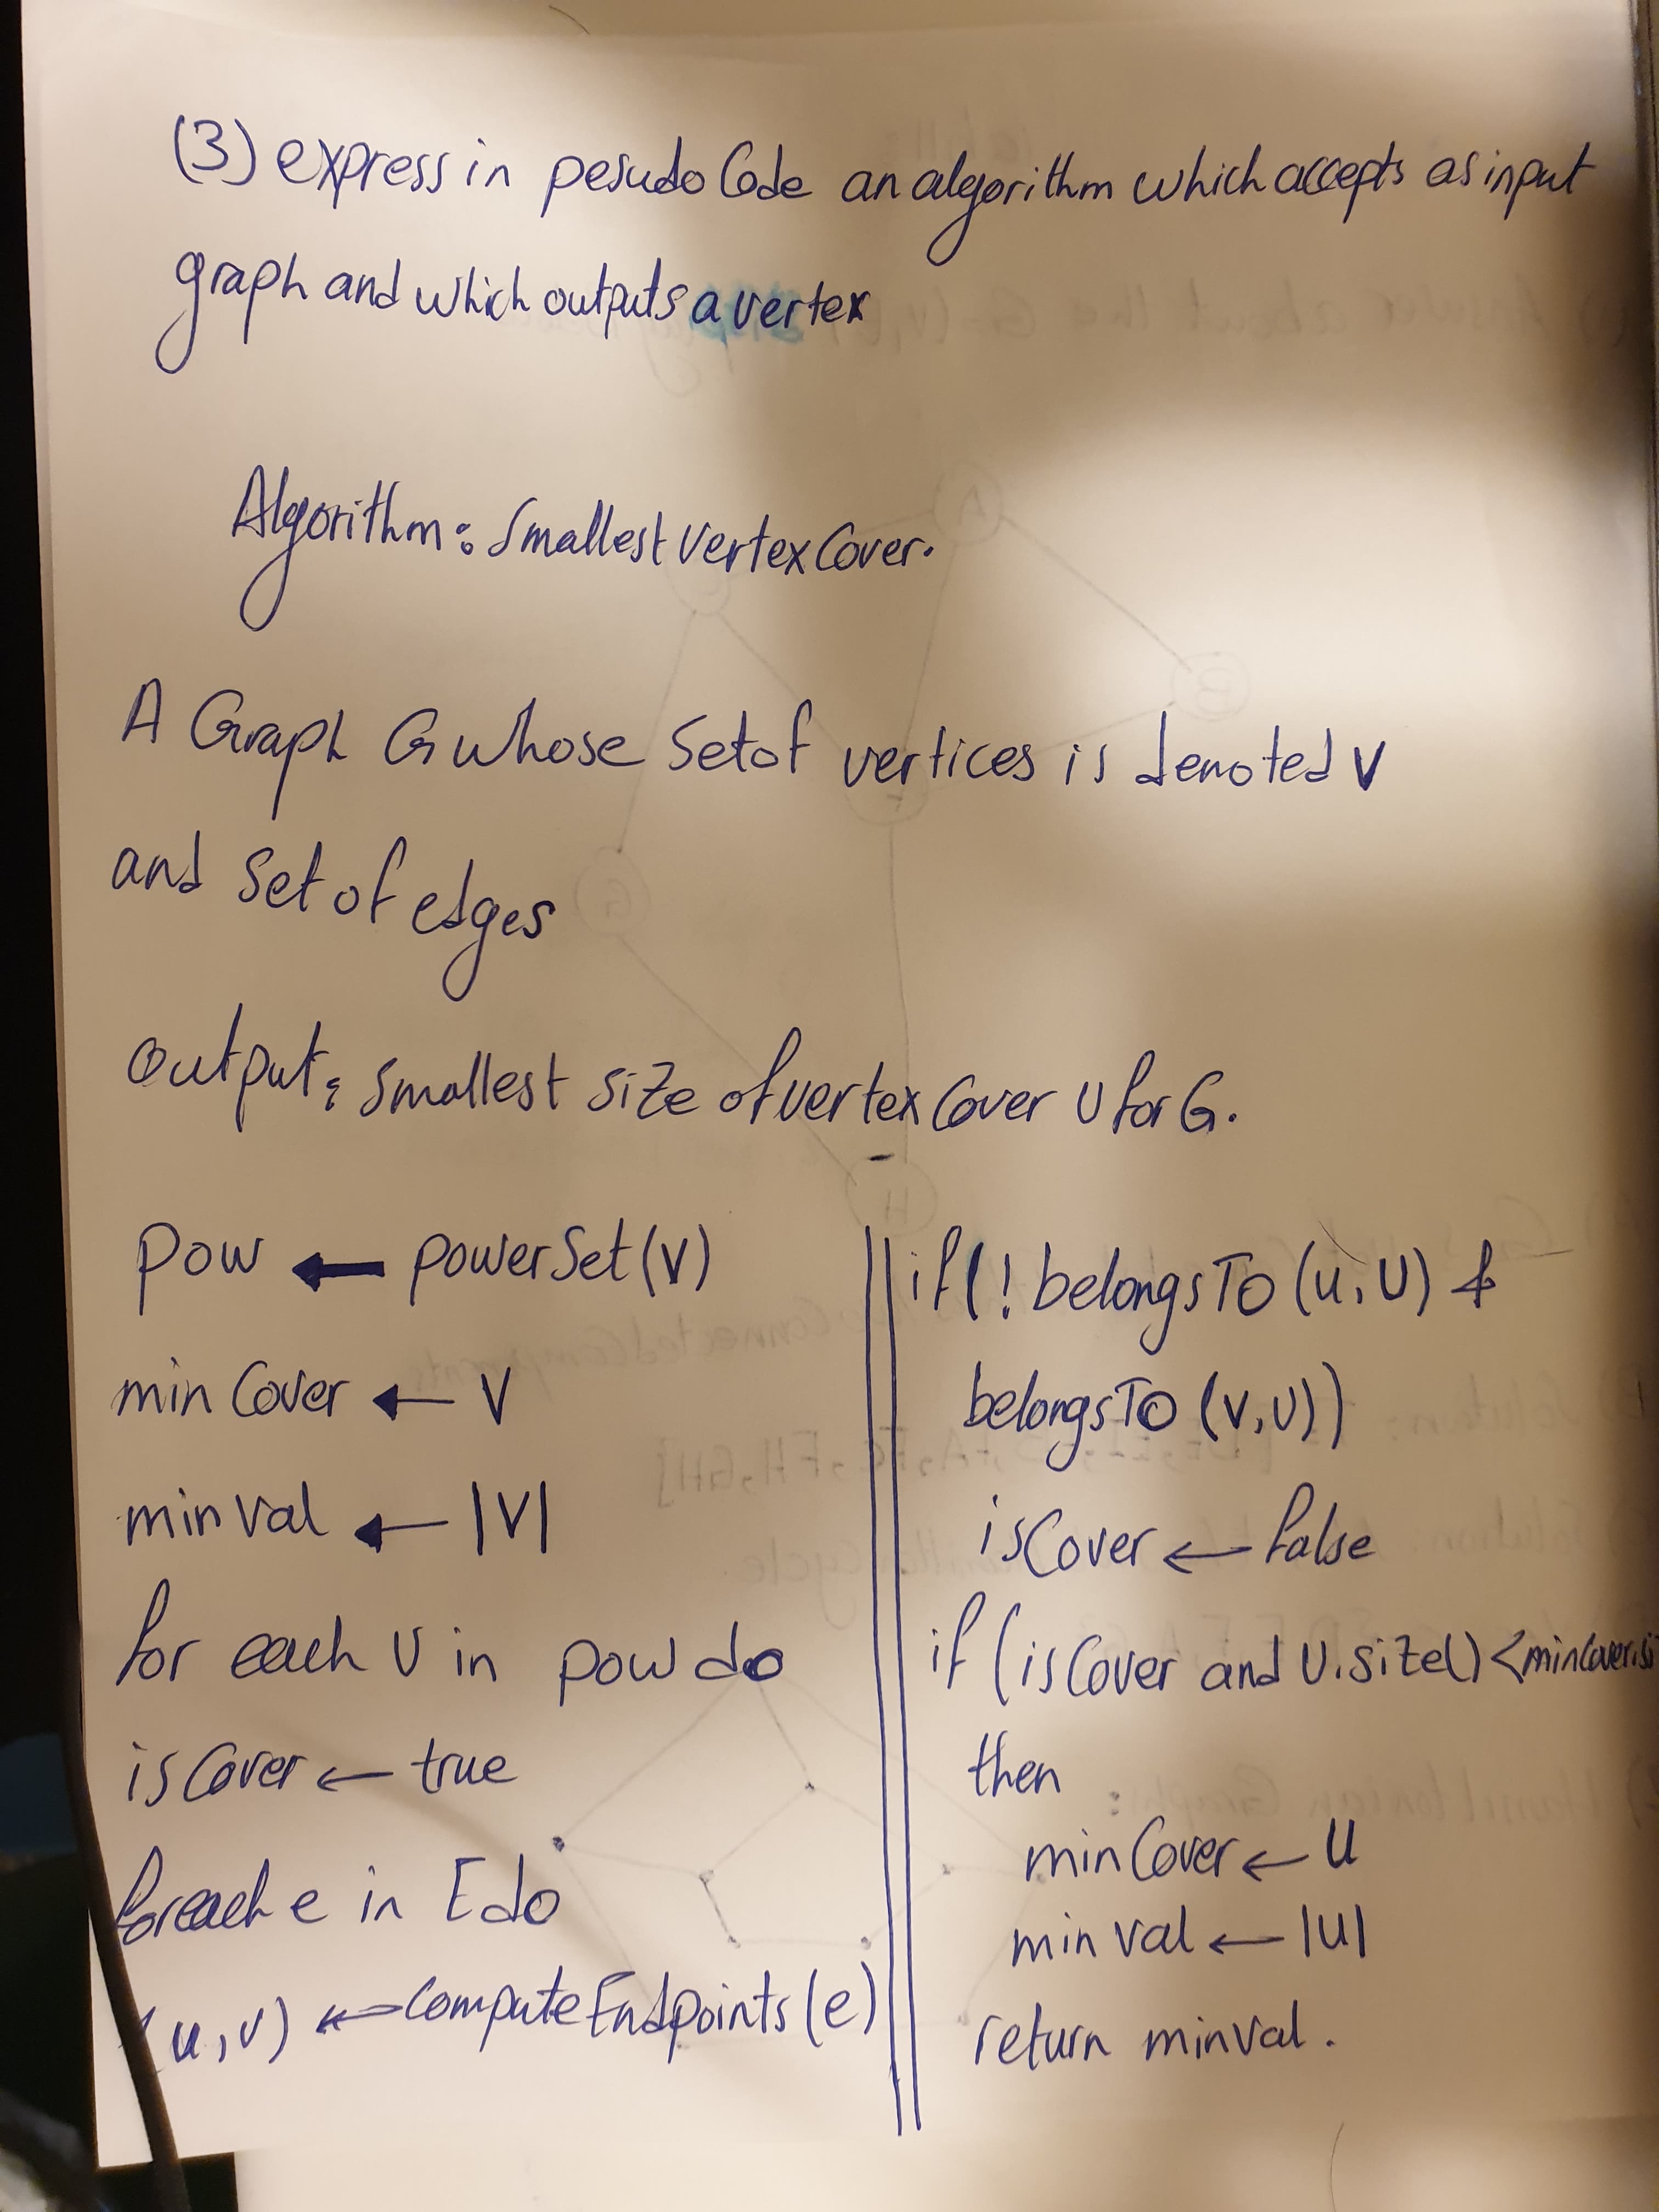 (3) express in pesudo Code an algorithm which accepts as input
graph and which outputs a vertex
Algorithm: Smallest Vertex Cover.
A Graph G whose set of vertices is denoted V
and set of edges
Output: smallest size of vertex Cover U for G.
pow ← powerSet(V)
min Cover ← V
min Val ← |V|
for each U in pow do
is Cover ← true
foreach e in E do
(u,v) ← compute Endpoints(e)
if(! belongsTo (u,U) &
belongsTo (v,U))
isCover ← false
if (isCover and U.size() <minCover.si
then
minCover ← U
min Val ← |U|
return minVal.